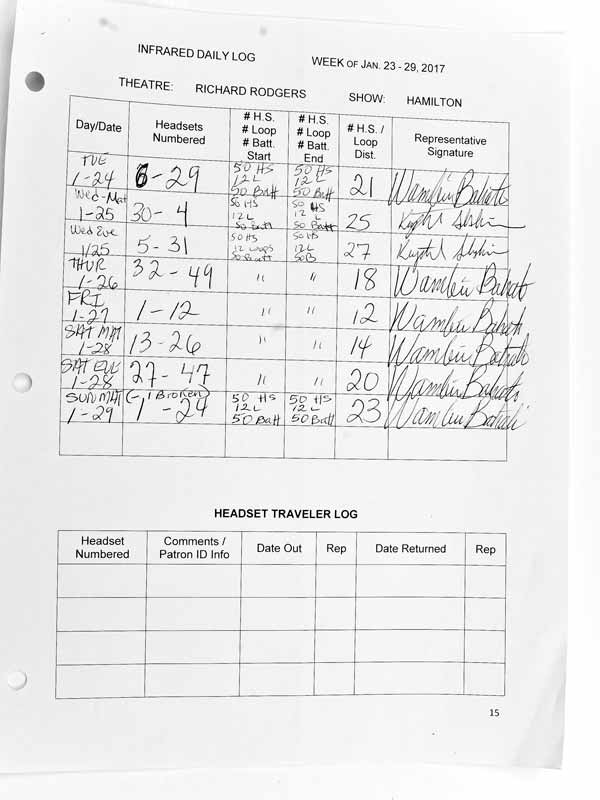 INFRARED DAILY LOG WEEK OF JAN. 23 - 29, 2017
THEATRE: RICHARD RODGERS SHOW: HAMILTON
Day/Date Headsets Numbered # H.S. # Loop # Batt. Start # H.S. # Loop # Batt. End # H.S. / Loop Dist. Representative Signature
TUE 1-24 6-29 50 HS 12 L 50 Batt 50 HS 12 L 50 Batt 21 Wambui Bahati
Wed-Mat 1-25 30-4 50 HS 12 L 50 Batt 50 HS 12 L 50 Batt 25
Wed Eve 1/25 5-31 50 HS 12 Loops 50 Batt 50 HS 12 L 50 B 27
THUR 1-26 32-49 " " 18 Wambui Bahati
FRI 1-27 1-12 " " 12 Wambui Bahati
SAT MAT 1-28 13-26 " " 14 Wambui Bahati
SAT EVE 1-28 27-47 " " 20 Wambui Bahati
SUN MAT 1-29 (-1 Broken) 1-24 50 HS 12 L 50 Batt 50 HS 12 L 50 Batt 23 Wambui Bahati
HEADSET TRAVELER LOG
Headset Numbered Comments / Patron ID Info Date Out Rep Date Returned Rep
15